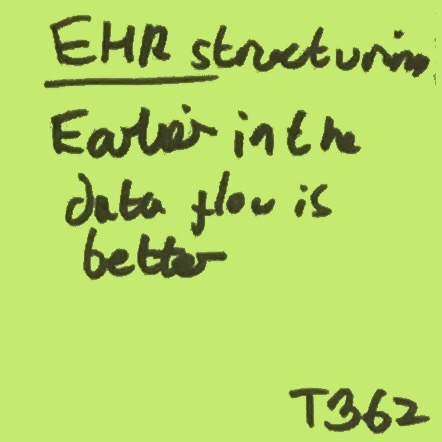 EHR structuring
Earlier in the
data flow is
better
T362